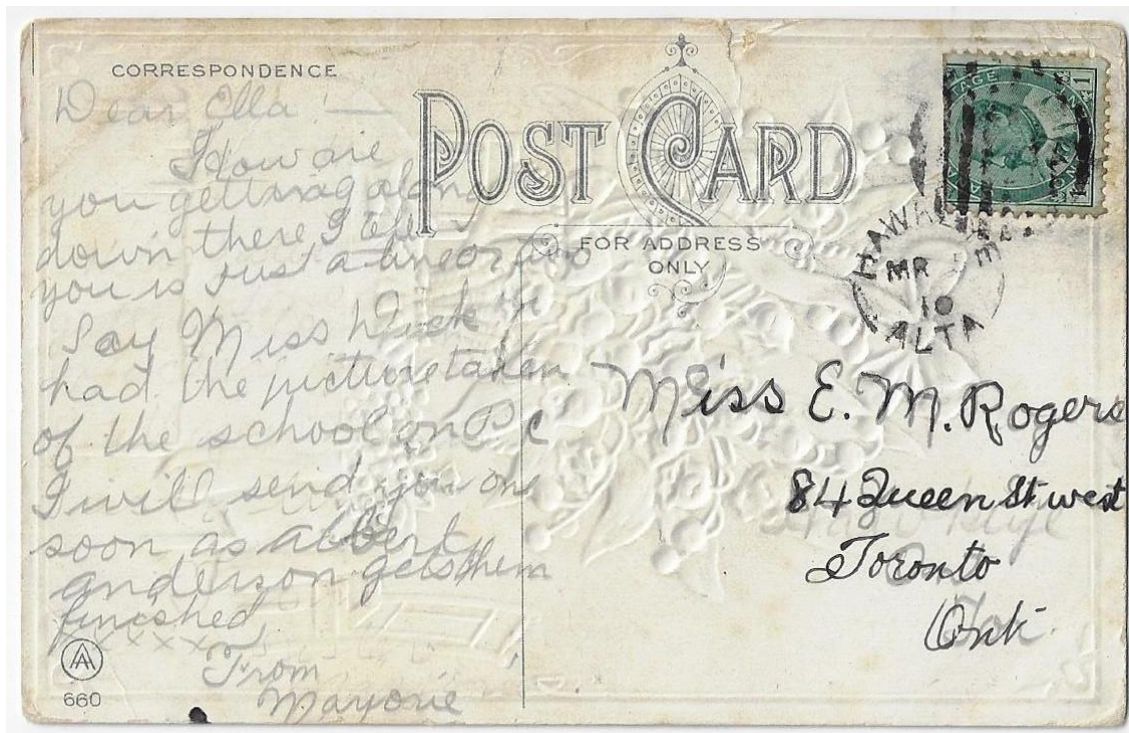 CORRESPONDENCE
POST CARD
FOR ADDRESS
ONLY
Dear Ella! —
How are
you getting along
down there I
you is just a line or two
Say Miss
had the picture taken
of the school on P.C
I will send you one
soon as albert
anderson gets them
finished
xxxxxxx
From
Marjorie
AA
660
MR
10
ALTA
1
Miss E. M. Rogers
84 Queen St west
Toronto
Ont.